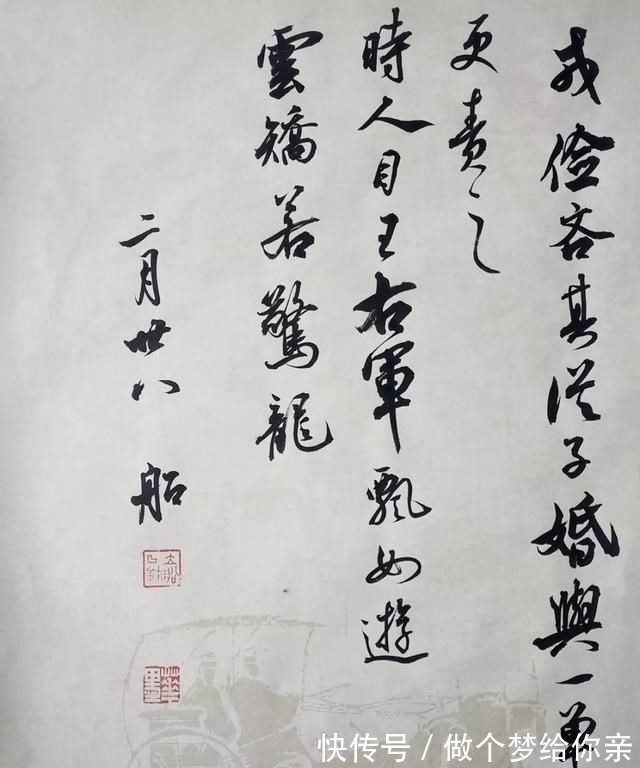 戎儉吝其從子婚與一單
更責之
時人目王右軍飄如遊
雲矯若驚龍
二月廿八 船
快传号 / 做个梦给你亲